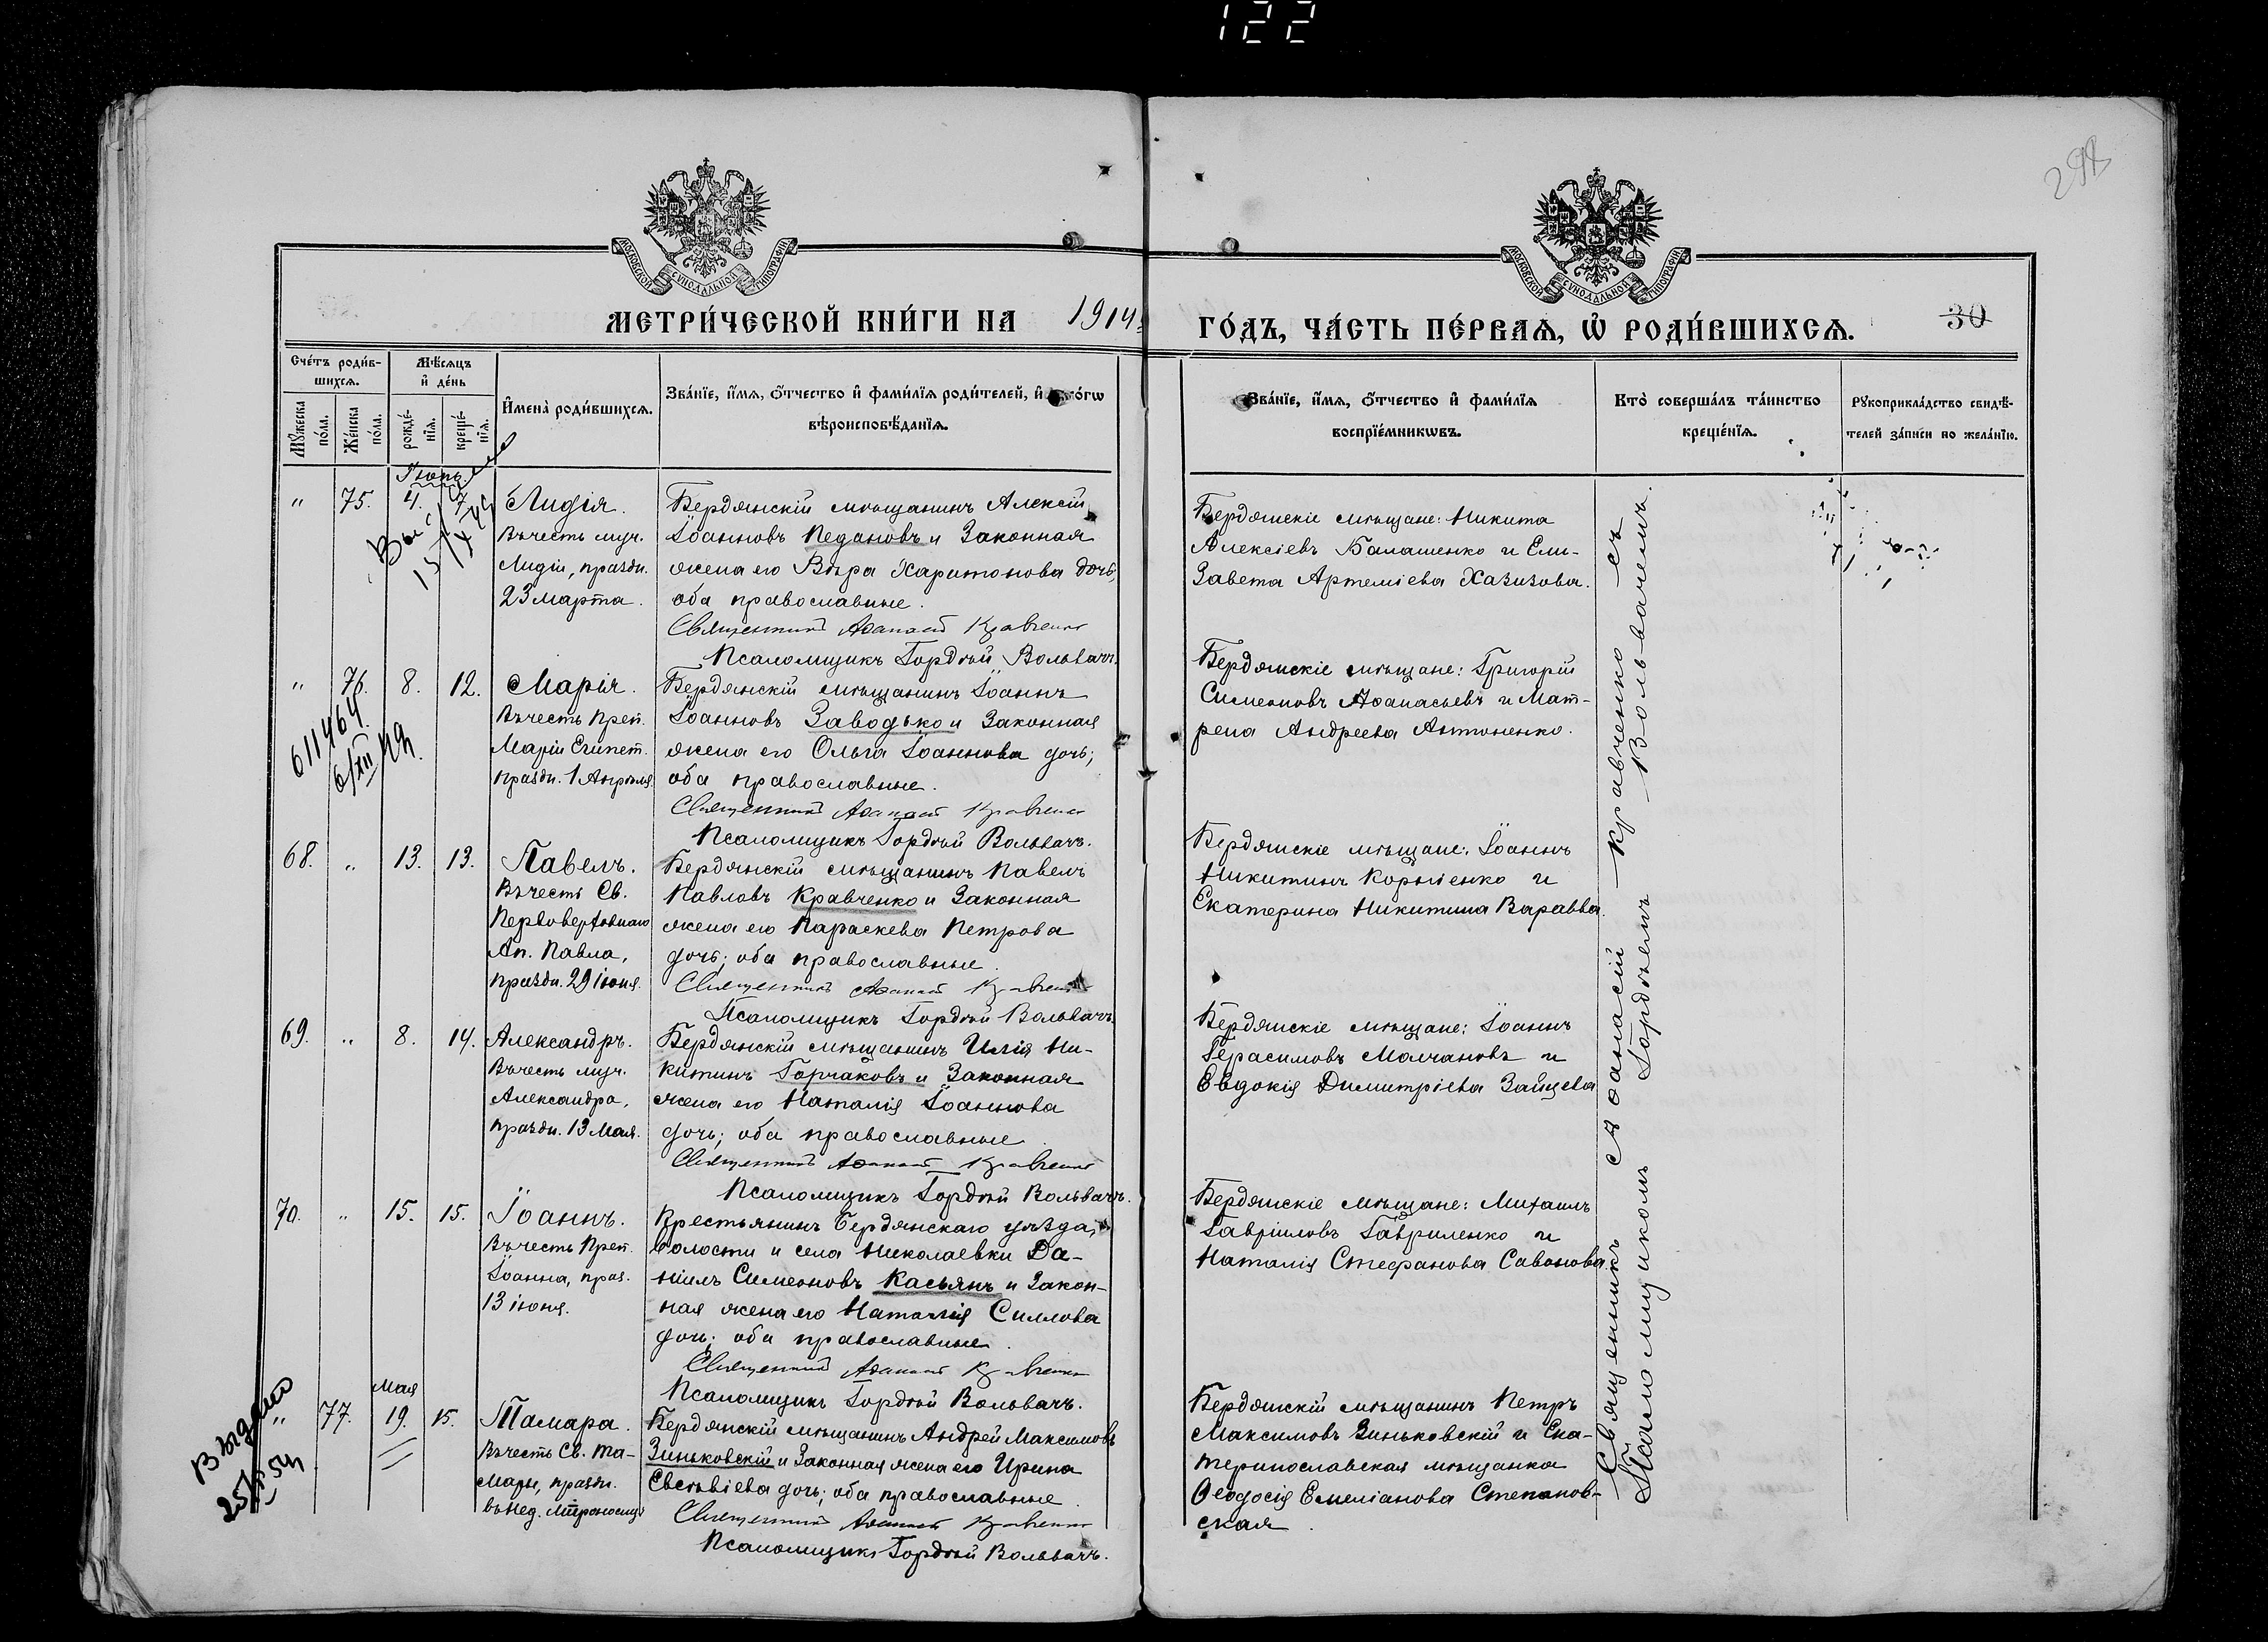 122
298
МОСКОВСКОЙ СѴНОДАЛЬНОЙ ТИПОГРАФІИ
МОСКОВСКОЙ СѴНОДАЛЬНОЙ ТИПОГРАФІИ
МЕТРИ́ЧЕСКОЙ КНИ́ГИ НА 1914
ГО́ДЪ, ЧА́СТЬ ПЕ́РВАѦ, Ѡ РОДИ́ВШИХСѦ.
30
Сче́тъ роди́в-
шихсѧ.
Мѹ́жеска
по́ла.
Же́нска
по́ла.
Мѣ́сѧцъ
и҆ де́нь
рожде́-
нїѧ.
креще́-
нїѧ.
И҆мена̀ роди́вшихсѧ.
Зва́нїе, и҆́мѧ, ѻ҆́тчество и҆ фами́лїѧ роди́телей, и҆
вѣроисповѣ́данїѧ.
Зва́нїе, и҆́мѧ, ѻ҆́тчество и҆ фами́лїѧ
воспрїе́мникѡвъ.
Кто̀ соверша́лъ та́инство
креще́нїѧ.
Рѹкоприкла́дство свидѣ́-
телей за́писи по жела́нїю.
Іюнь.
" 75. 4. 7.
Лидія.
Въ честь муч.
Лидіи, праздн.
23 марта.
Бердянскій мѣщанинъ Алексій
Іоанновъ Педановъ и Законная
жена его Вѣра Харитонова дочь,
оба православные.
Священникъ Аѳанасій Кравченко
Псаломщикъ Гордѣй Вольвачъ.
Бердянскіе мѣщане: Никита
Алексіевъ Балашенко и Ели-
завета Артеміева Хазизова.
" 76. 8. 12.
611464
6/XII
Марія.
Въ честь Преп.
Маріи Египет.
праздн. 1 Апрѣля.
Бердянскій мѣщанинъ Іоаннъ
Іоанновъ Заводько и Законная
жена его Ольга Іоаннова дочь;
оба православные.
Священникъ Аѳанасій Кравченко
Псаломщикъ Гордѣй Вольвачъ.
Бердянскіе мѣщане: Григорій
Симеоновъ Аѳанасьевъ и Мат-
рена Андреева Антоненко.
68. " 13. 13.
Павелъ.
Въ честь Св.
Первоверховнаго
Ап. Павла,
праздн. 29 іюня.
Бердянскій мѣщанинъ Павелъ
Павловъ Кравченко и Законная
жена его Параскева Петрова
дочь; оба православные.
Священникъ Аѳанасій Кравченко
Псаломщикъ Гордѣй Вольвачъ.
Бердянскіе мѣщане: Іоаннъ
Никитинъ Корніенко и
Екатерина Никитина Варавва.
69. " 8. 14.
Александръ.
Въ честь муч.
Александра,
праздн. 13 Мая.
Бердянскій мѣщанинъ Илія Ни-
китинъ Горчаковъ и Законная
жена его Наталія Іоаннова
дочь; оба православные.
Священникъ Аѳанасій Кравченко
Псаломщикъ Гордѣй Вольвачъ.
Бердянскіе мѣщане: Іоаннъ
Герасимовъ Молчановъ и
Евдокія Димитріева Зайцева
70. " 15. 15.
Іоаннъ.
Въ честь Преп.
Іоанна, праз.
13 іюня.
Крестьянинъ Бердянскаго уѣзда,
волости и села Николаевки Да-
ніилъ Симеоновъ Касьянъ и Закон-
ная жена его Наталія Силлова
дочь; оба православные.
Священникъ Аѳанасій Кравченко
Псаломщикъ Гордѣй Вольвачъ.
Бердянскіе мѣщане: Михаилъ
Гавріиловъ Гавриленко и
Наталія Стефанова Савонова.
Выдано
Мая
" 77. 19. 15.
Тамара.
Въ честь Св. Та-
мары, праздн.
въ нед. Мѵроносицъ
Бердянскій мѣщанинъ Андрей Максимовъ
Зиньковскій и Законная жена его Ирина
Евсевіева дочь; оба православные.
Священникъ Аѳанасій Кравченко
Псаломщикъ Гордѣй Вольвачъ.
Бердянскій мѣщанинъ Петръ
Максимовъ Зиньковскій и Ека-
теринославская мѣщанка
Ѳеодосія Емеліанова Степанов-
ская.
Священникъ Аѳанасій Кравченко съ
Псаломщикомъ Гордѣемъ Вольвачемъ.